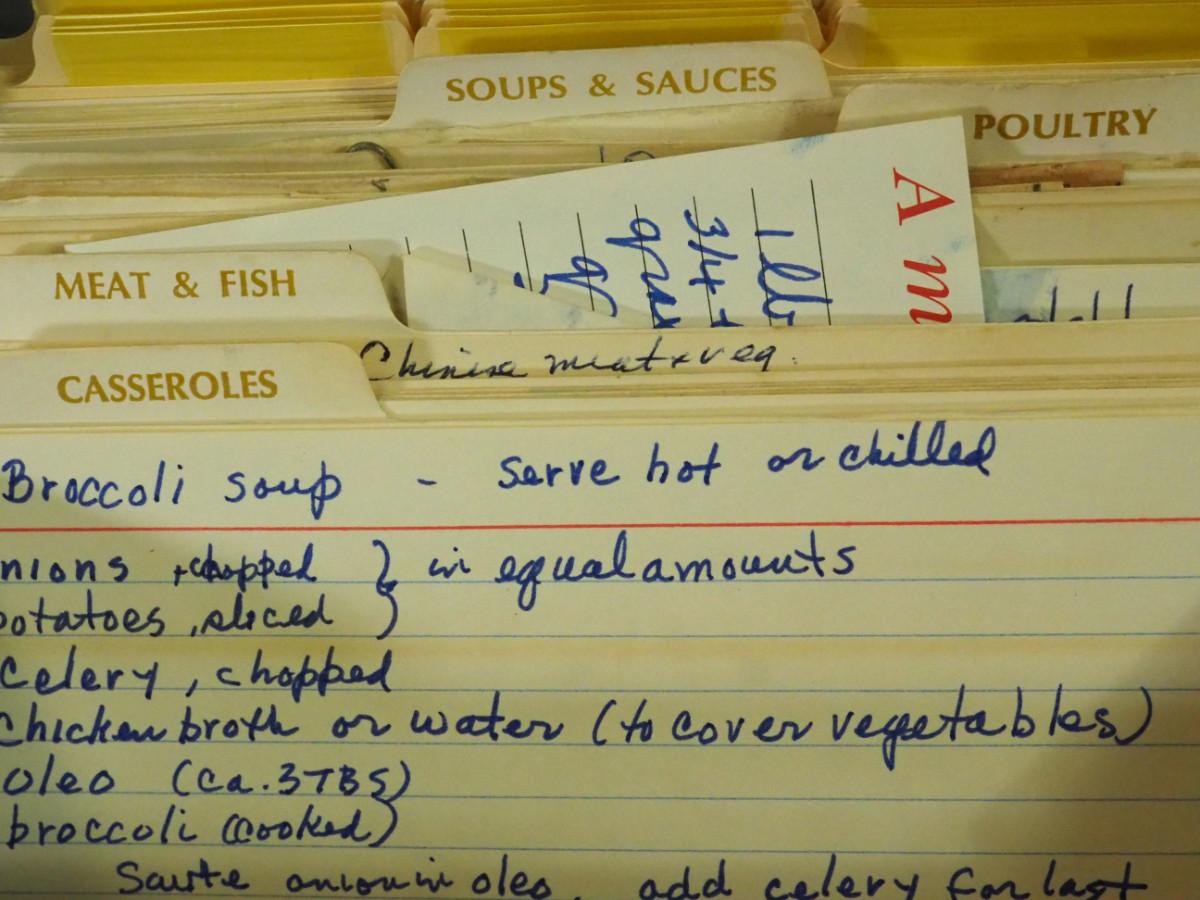 SOUPS & SAUCES
POULTRY
A m
1 lb
3/4 +
MEAT & FISH
Chinese meat + veg.
CASSEROLES
Broccoli soup - serve hot or chilled
nions, chopped } in equal amounts
potatoes, sliced }
celery, chopped
chicken broth or water (to cover vegetables)
oleo (ca. 3 TBS)
broccoli (cooked)
Saute onion in oleo, add celery for last